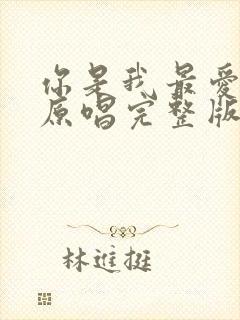 你是我最爱
原唱完整版
林進挺